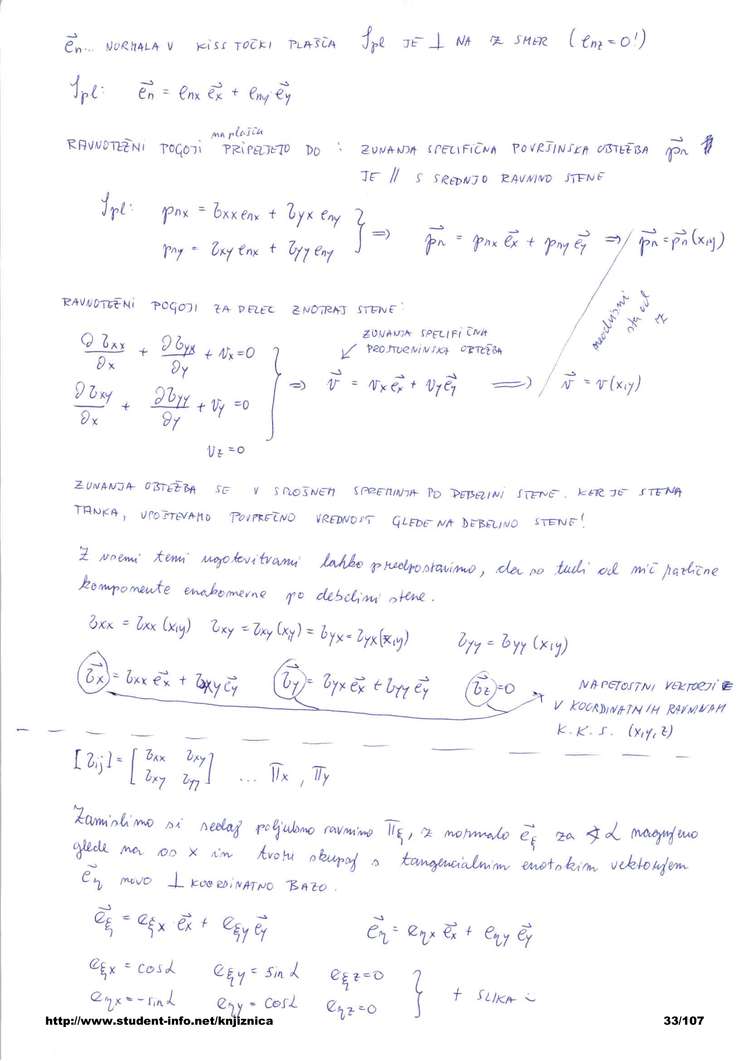 e⃗n... NORMALA V KISS TOČKI PLAŠČA Spl JE ⊥ NA Z SMER (enz=0!)
Spl: e⃗n = enx e⃗x + eny e⃗y
na plašču
RAVNOTEŽNI POGOJI PRIPELJETO DO : ZUNANJA SPECIFIČNA POVRŠINSKA OBTEŽBA p⃗n
JE // S SREDNJO RAVNINO STENE
Spl: pnx = σxx enx + σyx eny
pny = σxy enx + σyy eny } => p⃗n = pnx e⃗x + pny e⃗y => p⃗n = p⃗n(x,y)
neodvisni sta od z
RAVNOTEŽNI POGOJI ZA DELEC ZNOTRAJ STENE:
ZUNANJA SPECIFIČNA
PROSTORNINSKA OBTEŽBA
∂σxx/∂x + ∂σyx/∂y + vx = 0
∂σxy/∂x + ∂σyy/∂y + vy = 0 } => v⃗ = vx e⃗x + vy e⃗y => v⃗ = v(x,y)
vz = 0
ZUNANJA OBTEŽBA SE V SPLOŠNEM SPREMINJA PO DEBELINI STENE. KER JE STENA
TANKA, UPOŠTEVAMO POVPREČNO VREDNOST GLEDE NA DEBELINO STENE!
Z vsemi temi ugotovitvami lahko predpostavimo, da so tudi od nič različne
komponente enakomerne po debelini stene.
σxx = σxx(x,y) σxy = σxy(x,y) = σyx = σyx(x,y) σyy = σyy(x,y)
σ⃗x = σxx e⃗x + σxy e⃗y σ⃗y = σyx e⃗x + σyy e⃗y σ⃗z = 0 NAPETOSTNI VEKTORJI
V KOORDINATNIH RAVNINAH
K.K.S. (x,y,z)
[σij] = [σxx σxy
σxy σyy] ... Πx, Πy
Zamislimo si sedaj poljubno ravnino Πξ, z normalo e⃗ξ za ∢α nagnjeno
glede na os x in tvori skupaj s tangencialnim enotskim vektorjem
e⃗η novo ⊥ KOORDINATNO BAZO.
e⃗ξ = eξx e⃗x + eξy e⃗y e⃗η = eηx e⃗x + eηy e⃗y
eξx = cosα eξy = sinα eξz = 0
eηx = -sinα eηy = cosα eηz = 0 } + SLIKA
http://www.student-info.net/knjiznica 33/107